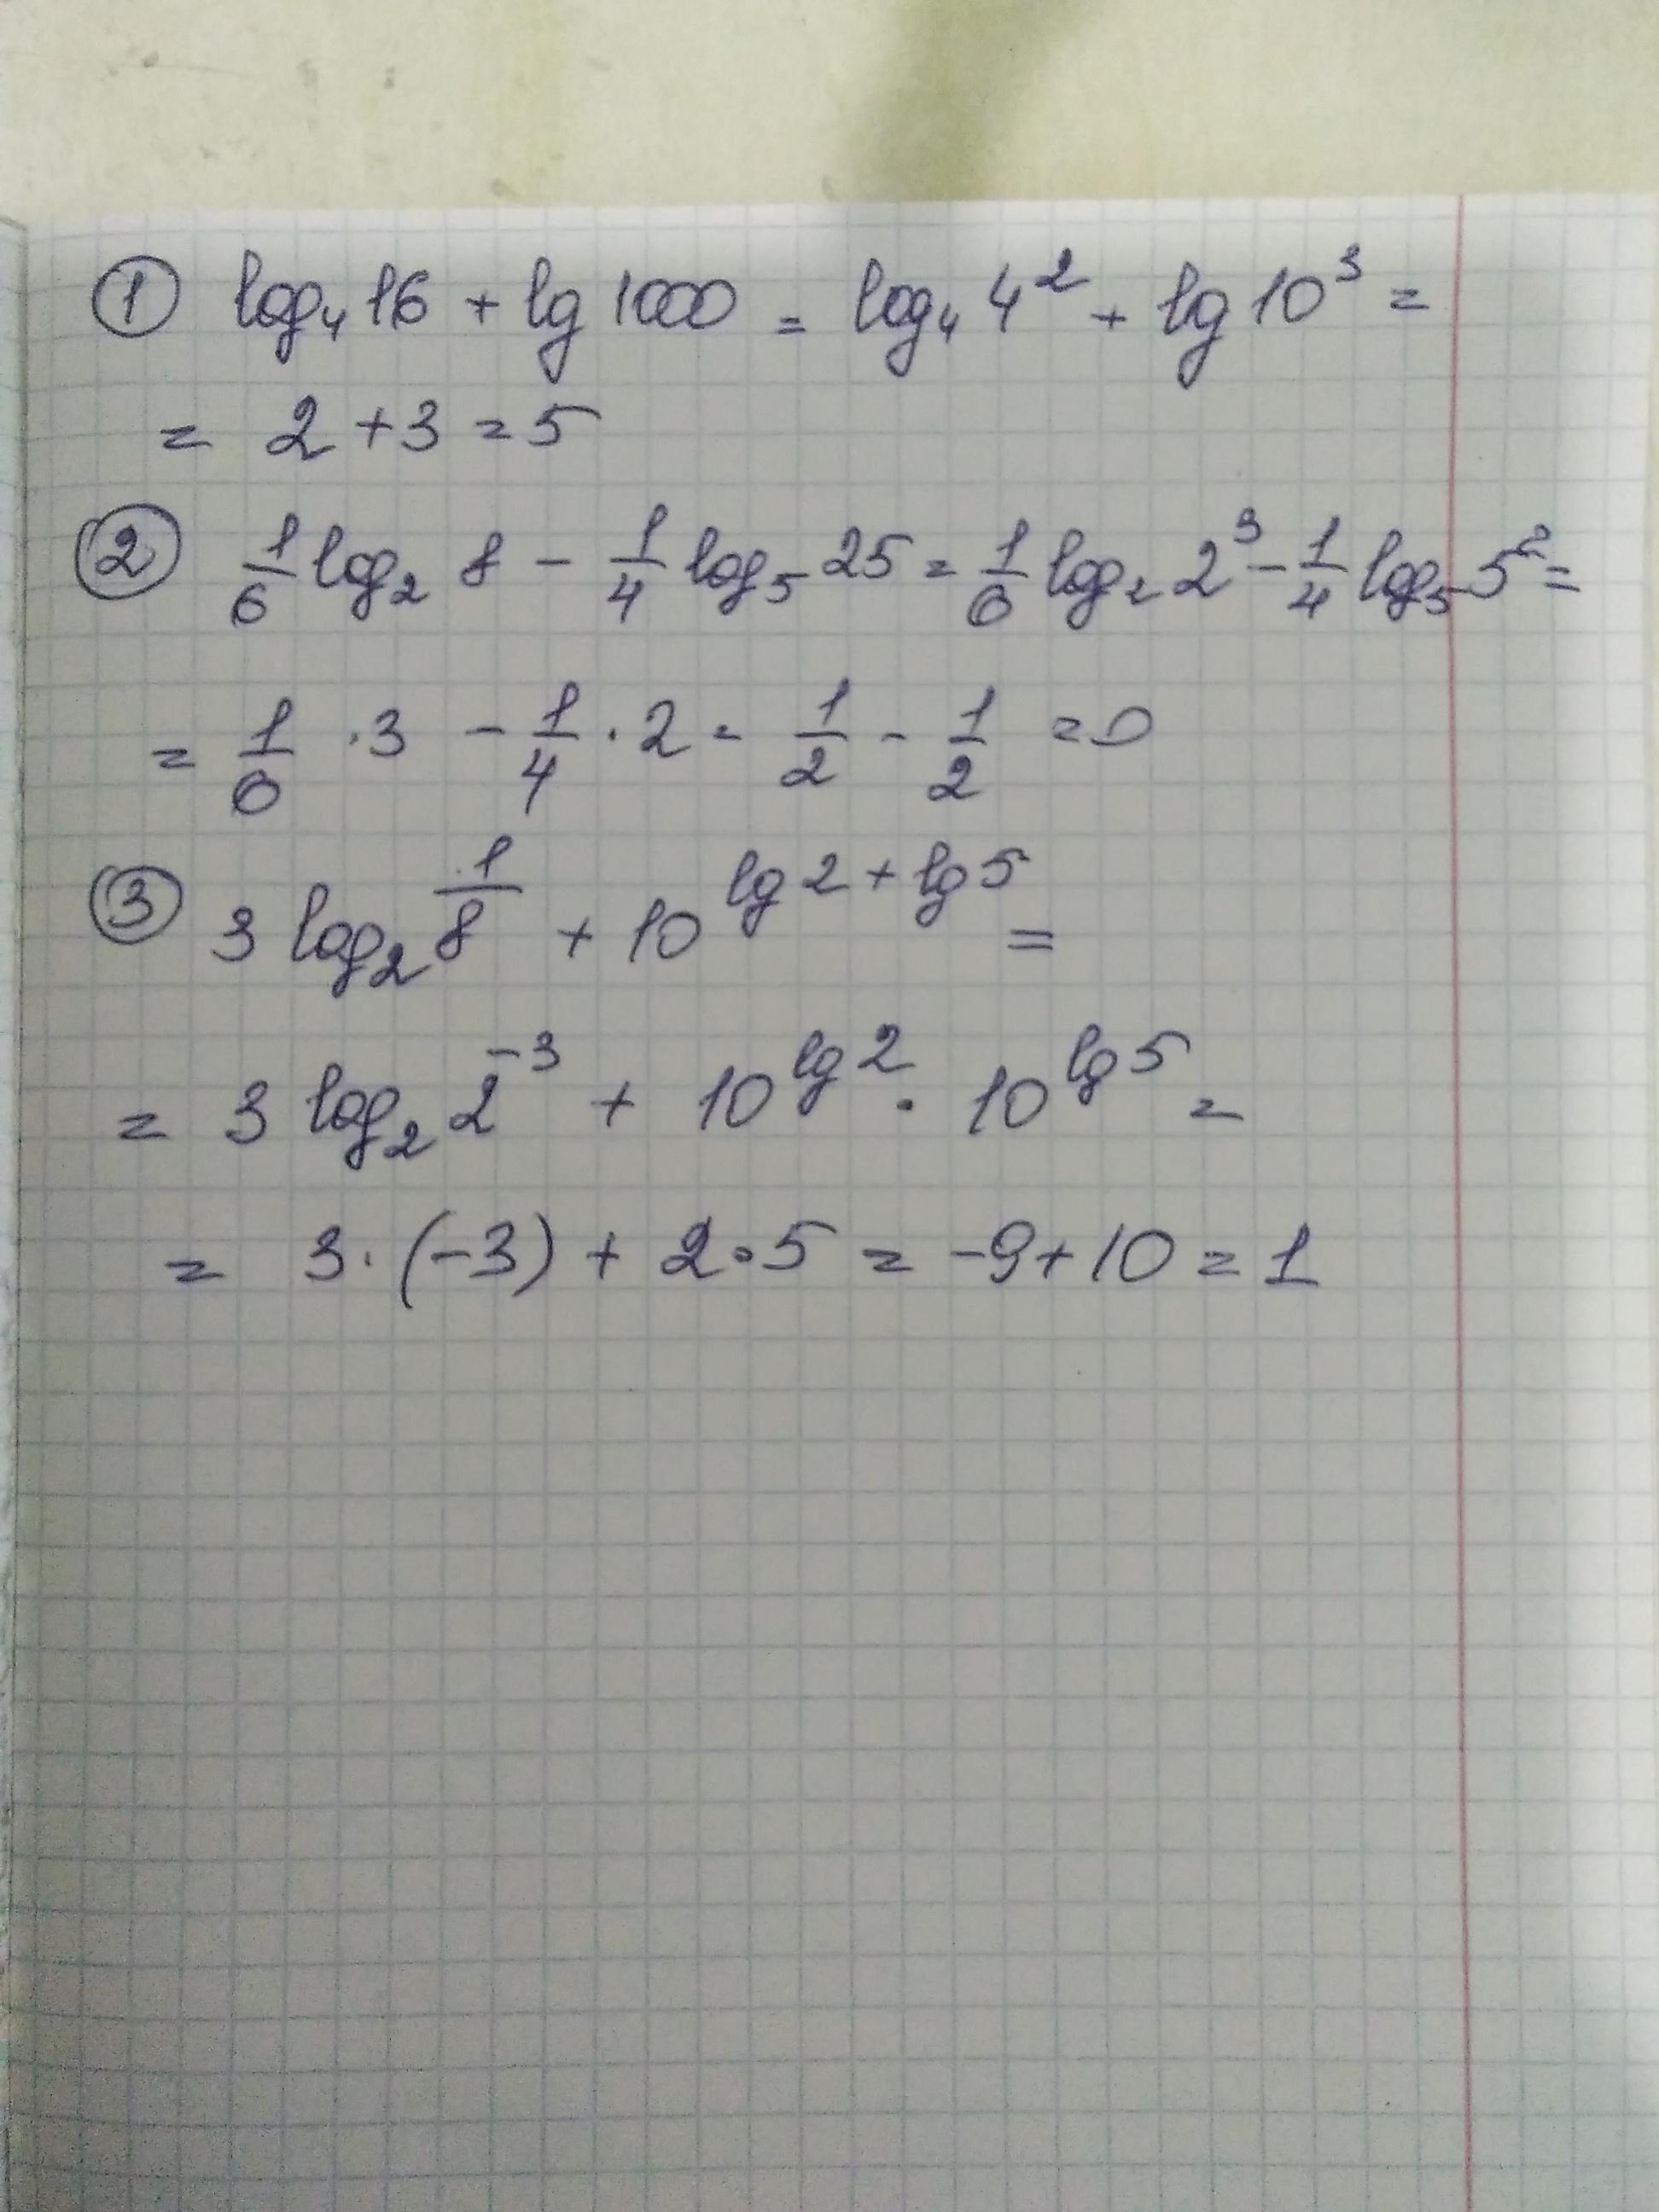 ① log₄ 16 + lg 1000 = log₄ 4² + lg 10³ =
= 2 + 3 = 5
② 1/6 log₂ 8 - 1/4 log₅ 25 = 1/6 log₂ 2³ - 1/4 log₅ 5² =
= 1/6 · 3 - 1/4 · 2 = 1/2 - 1/2 = 0
③ 3 log₂ 1/8 + 10^(lg 2 + lg 5) =
= 3 log₂ 2⁻³ + 10^(lg 2) · 10^(lg 5) =
= 3 · (-3) + 2 · 5 = -9 + 10 = 1